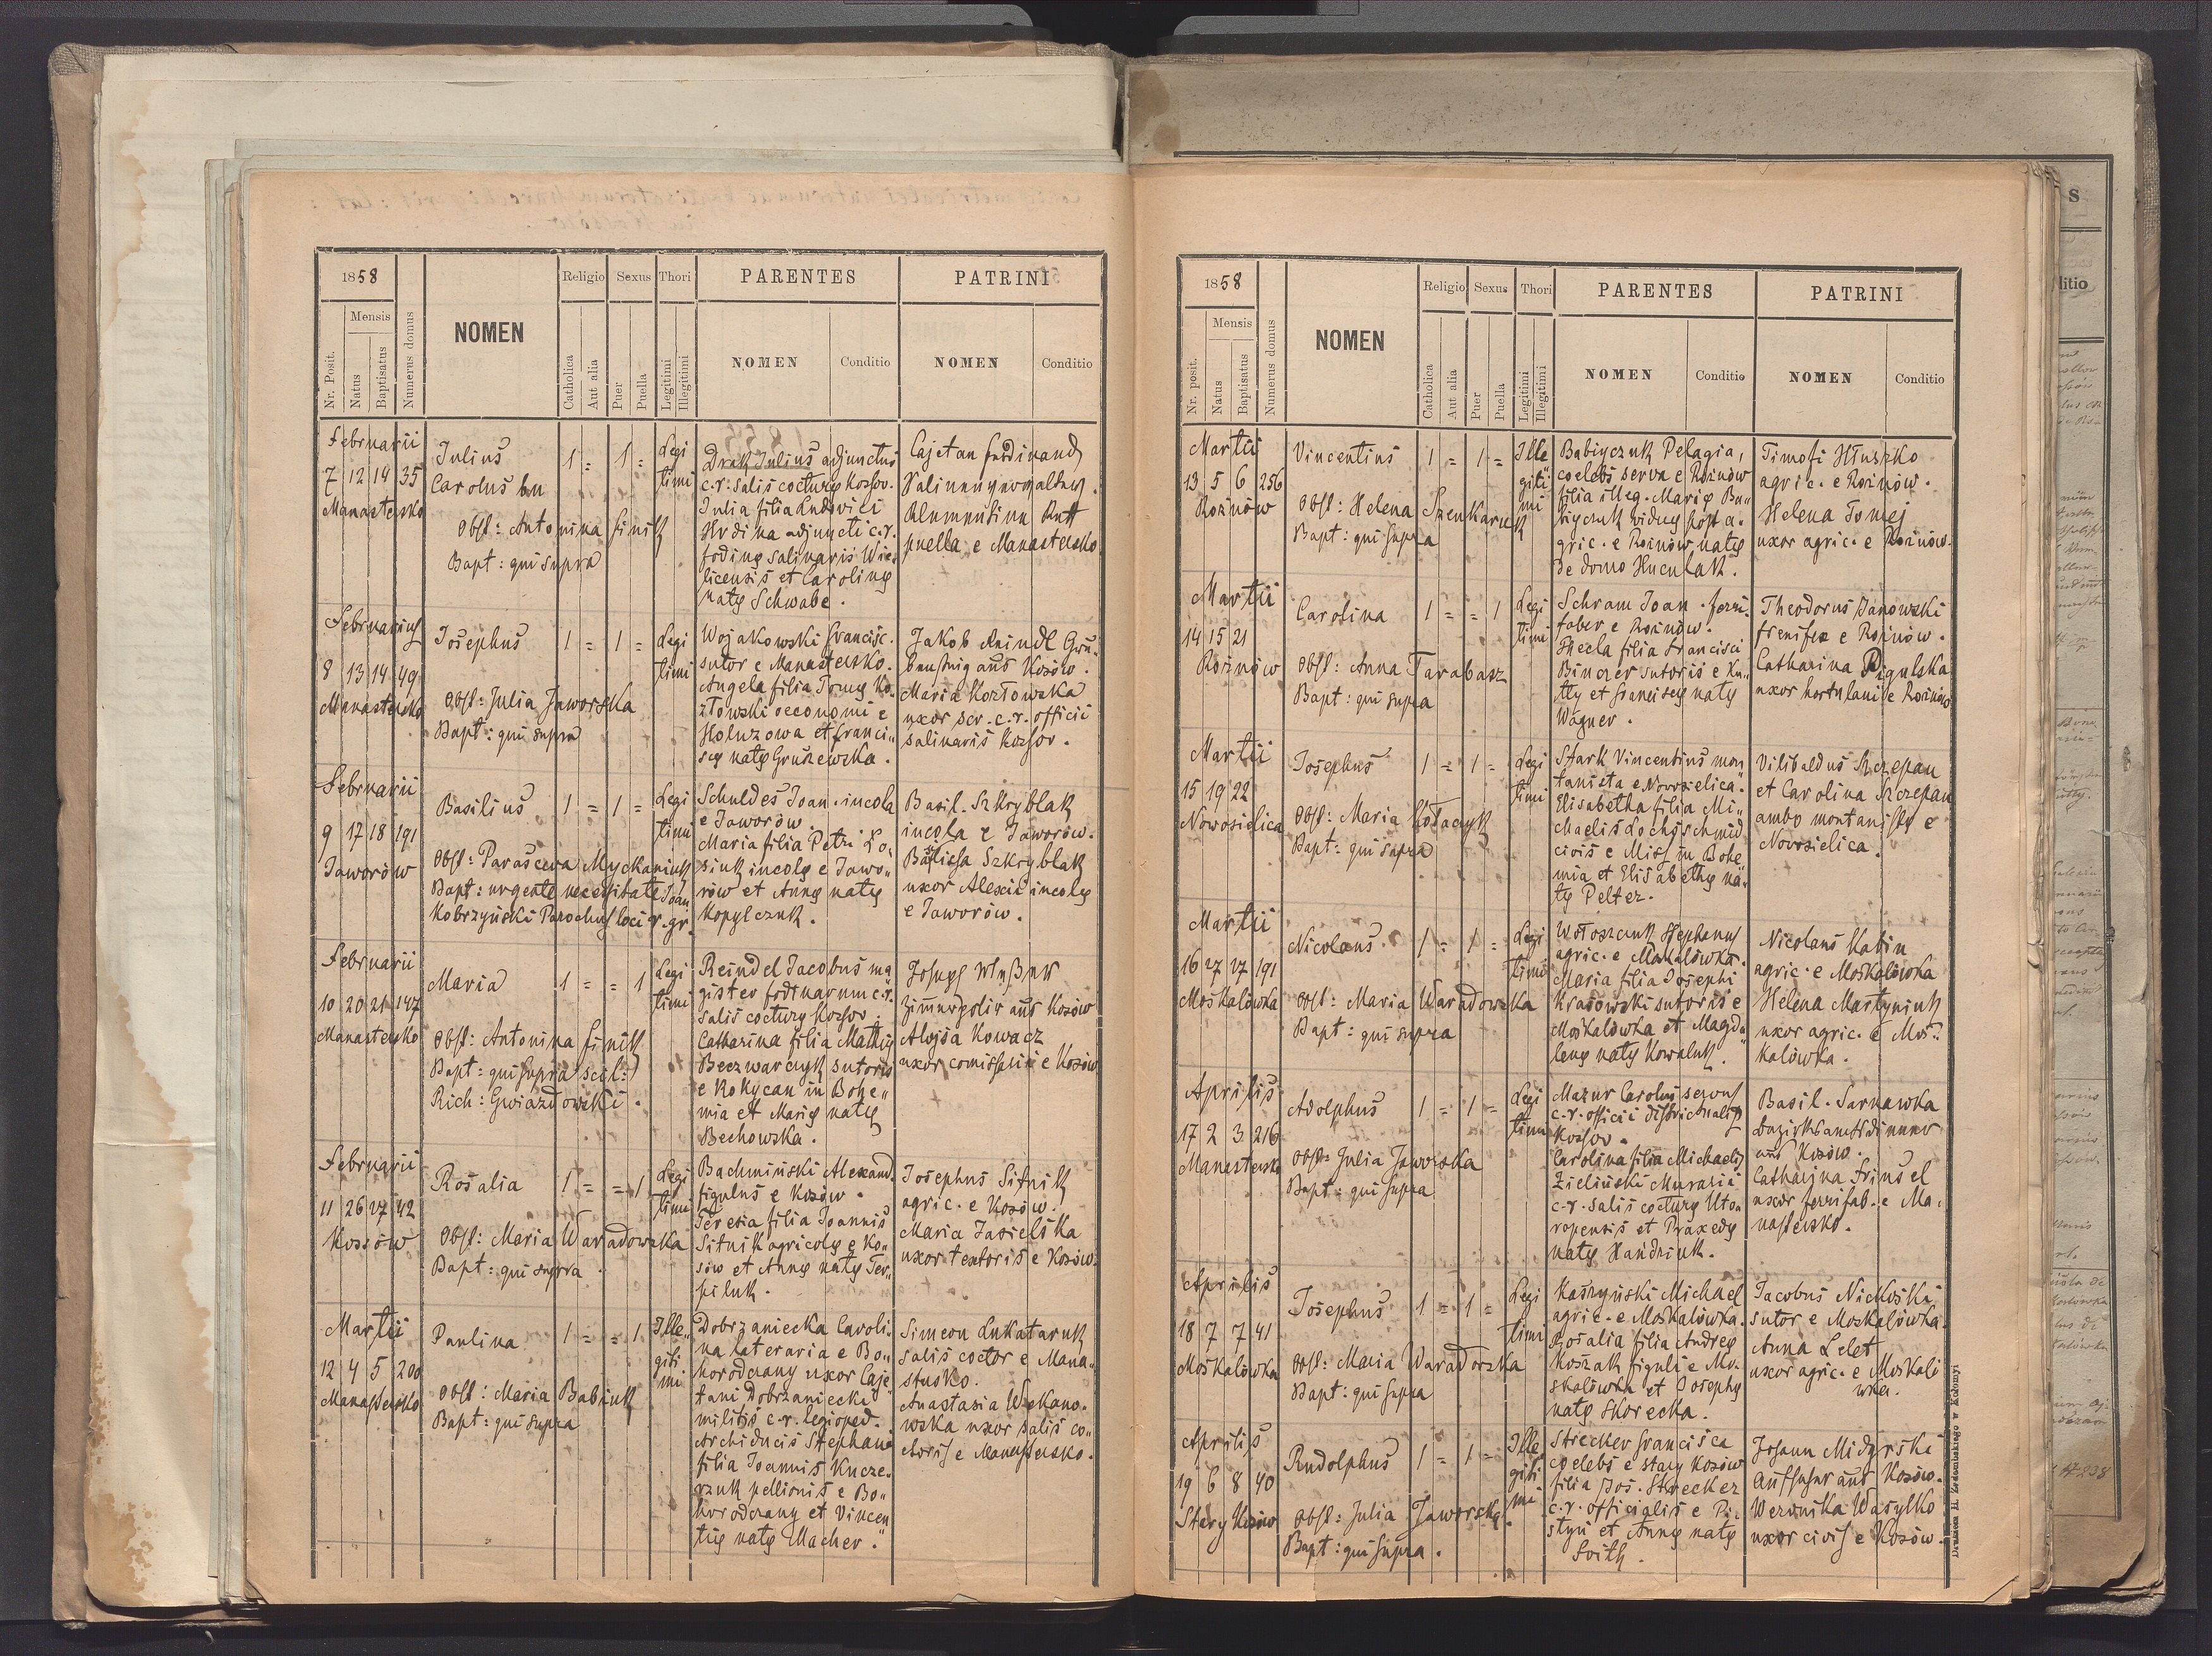 1858
Religio Sexus Thori
PARENTES
PATRINI
Mensis
Nr. Posit.
Natus
Baptisatus
Numerus domus
NOMEN
Catholica
Aut alia
Puer
Puella
Legitimi
Illegitimi
NOMEN Conditio
NOMEN Conditio
Februarii
7 12 14 35
Manastersko
Julius
Carolus
Obst: Antonina Finik
Bapt: qui supra
1 = 1 =
Legi
timi
Drak Julius adjunctus
c.r. salis cocturę Kossov.
Julia filia Ludovici
Hrdina adjuncti c.r.
fodinę salinaris Wie„
licensis et Carolinę
natę Schwabe.
Cajetan Ferdinand
puella e Manastersko
Februarius
8 13 14 49
Manastersko
Josephus
Obst: Julia Jaworska
Bapt: qui supra
1 = 1 =
Legi
timi
Wojakowski Francisc.
sutor e Manastersko.
Angela filia Tomę Ko„
złowski oeconomi e
et Franci„
scę natę Gruszewska.
Jakob Reindl
aus Kosów.
Maria Kozłowska
uxor scr. c.r. officii
salinaris Kossov.
Februarii
9 17 18 191
Jaworów
Basilius
Obst: Parascewa Myckaniuk
Bapt: urgente necessitate Joan
Kobrzyński Parochus loci r. gr.
1 = 1 =
Legi
timi
Schuldes Joan. incola
e Jaworów.
Maria filia Petri Ło„
siuk incolę e Jawo„
rów et Annę natę
Kopylczuk.
Basil. Szkryblak
incola e Jaworów.
Szkryblak
uxor Alexii incolę
e Jaworów.
Februarii
10 20 21 147
Manastersko
Maria
Obst: Antonina Finik
Bapt: qui supra scil:
Rich: Gwiazdowski.
1 = = 1
Legi
timi
Reindel Jacobus ma„
gister c.r.
salis cocturę Kossov.
Catharina filia Mathię
Beczwarczyk sutoris
e Rokycan in Bohe„
mia et Marię natę
Bechowska.
Joseph
aus Kosów
Aloisa Kowacz
uxor comissarii e Kosów
Februarii
11 26 27 42
Kossów
Rosalia
Obst: Maria Waradowska
Bapt: qui supra
1 = = 1
Legi
timi
Bachmiński Alexand.
figulus e Kosów.
Teresia filia Joannis
Sitnik agricolę e Ko„
sów et Annę natę Ter„
piluk.
Josephus Sitnik
agric. e Kosów.
Maria Jasielska
uxor textoris e Kosów.
Martii
12 4 5 200
Manastersko
Paulina
Obst: Maria Babiuk
Bapt: qui supra
1 = = 1
Ille„
giti
mi
Dobrzaniecka Caroli„
na lateraria e Bo„
horodczany uxor Caje
tani Dobrzaniecki
militis c.r. legioped.
Archiducis Stephani
filia Joannis Kucze„
rzuk pellionis e Bo„
horodczany et Vincen
tię natę Macher.
Simeon Lukataruk
salis coctor e Mana„
stersko.
Anastasia
wska uxor salis co„
ctoris e Manastersko.
1858
Religio Sexus Thori
PARENTES
PATRINI
Mensis
Nr. posit.
Natus
Baptisatus
Numerus domus
NOMEN
Catholica
Aut alia
Puer
Puella
Legitimi
Illegitimi
NOMEN Conditio
NOMEN Conditio
Martii
13 5 6 256
Rożnów
Vincentius
Obst: Helena Szenkaruk
Bapt: qui supra
1 = 1 =
Ille
giti„
mi
Babiyczuk Pelagia,
coelebs serva e Rożnów
filia illeg. Marię Ba„
biyczuk viduę post a„
gric. e Rożnów natę
de domo Huculak.
Timofi Hłuszko
agric. e Rożnów.
Helena Tomej
uxor agric. e Rożnów.
Martii
14 15 21
Rożnów
Carolina
Obst: Anna Tarabasz
Bapt: qui supra
1 = = 1
Legi
timi
Schram Joan. ferri„
faber e Rożnów.
Thecla filia Francisci
Binczer sutoris e Ku„
tty et Franciscę natę
Wagner.
Theodorus Janowski
frenifex e Rożnów.
Catharina Pigulska
uxor hortulani e Rożnów
Martii
15 19 22
Nowosielica
Josephus
Obst: Maria Kołaczyk
Bapt: qui supra
1 = 1 =
Legi
timi
Stark Vincentius mon
tanista e Novosielica.
Elisabetha filia Mi„
chaelis Lochschmid
civis e Miss in Bohe
mia et Elisabethę na„
tę Pelter.
Vilibaldus Szczepan
et Carolina Szczepan
ambo montanistę e
Novosielica.
Martii
16 27 27 191
Moskalówka
Nicolaus
Obst: Maria Waradowska
Bapt: qui supra
1 = 1 =
Legi
timi
Wołoszczuk Stephanus
agric. e Moskalówka.
Maria filia Josephi
Krasowski sutoris e
Moskalówka et Magda„
lenę natę Kowaluk.
Nicolaus Kabin
agric. e Moskalówka
Helena Martyniuk
uxor agric. e Mos„
kalówka.
Aprilis
17 2 3 216
Manastersko
Adolphus
Obst: Julia Jaworska
Bapt: qui supra
1 = 1 =
Legi
timi
Mazur Carolus servus
c.r. officii districtualis
Kossov.
Carolina filia Michaelis
Zieliński Murarii
c.r. salis cocturę Uto„
ropensis et Praxedę
natę Handziuk.
Basil. Sarnawka
Bezirksamtsdiener
aus Kosów.
Catharina Frinsel
uxor ferrifab. e Ma„
nastersko.
Aprilis
18 7 7 41
Moskalówka
Josephus
Obst: Maria Waradowska
Bapt: qui supra
1 = 1 =
Legi
timi
Kaszyński Michael
agric. e Moskalówka.
Rosalia filia Andreę
Koszak figuli e Mo„
skalówka et Josephę
natę Skorecka.
Jacobus Nickoski
sutor e Moskalówka.
Anna Lelet
uxor agric. e Moskaló
wka.
Aprilis
19 6 8 40
Stary Kosów
Rudolphus
Obst: Julia Jaworska.
Bapt: qui supra.
1 = 1 =
Ille
giti
mi
Strecker Francisca
coelebs e stary Kosów
filia Jos. Strecker
c.r. officialis e Pi„
styń et Annę natę
Foith.
Johann Midyrski
Aufseher aus Kosów.
Weronika Wasylko
uxor civis e Kosów.